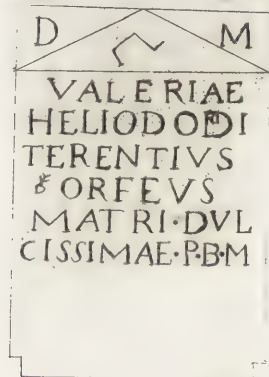 D M
VALERIAE
HELIODORDI
TERENTIVS
ORFEVS
MATRI·DVL
CISSIMAE·P·B·M